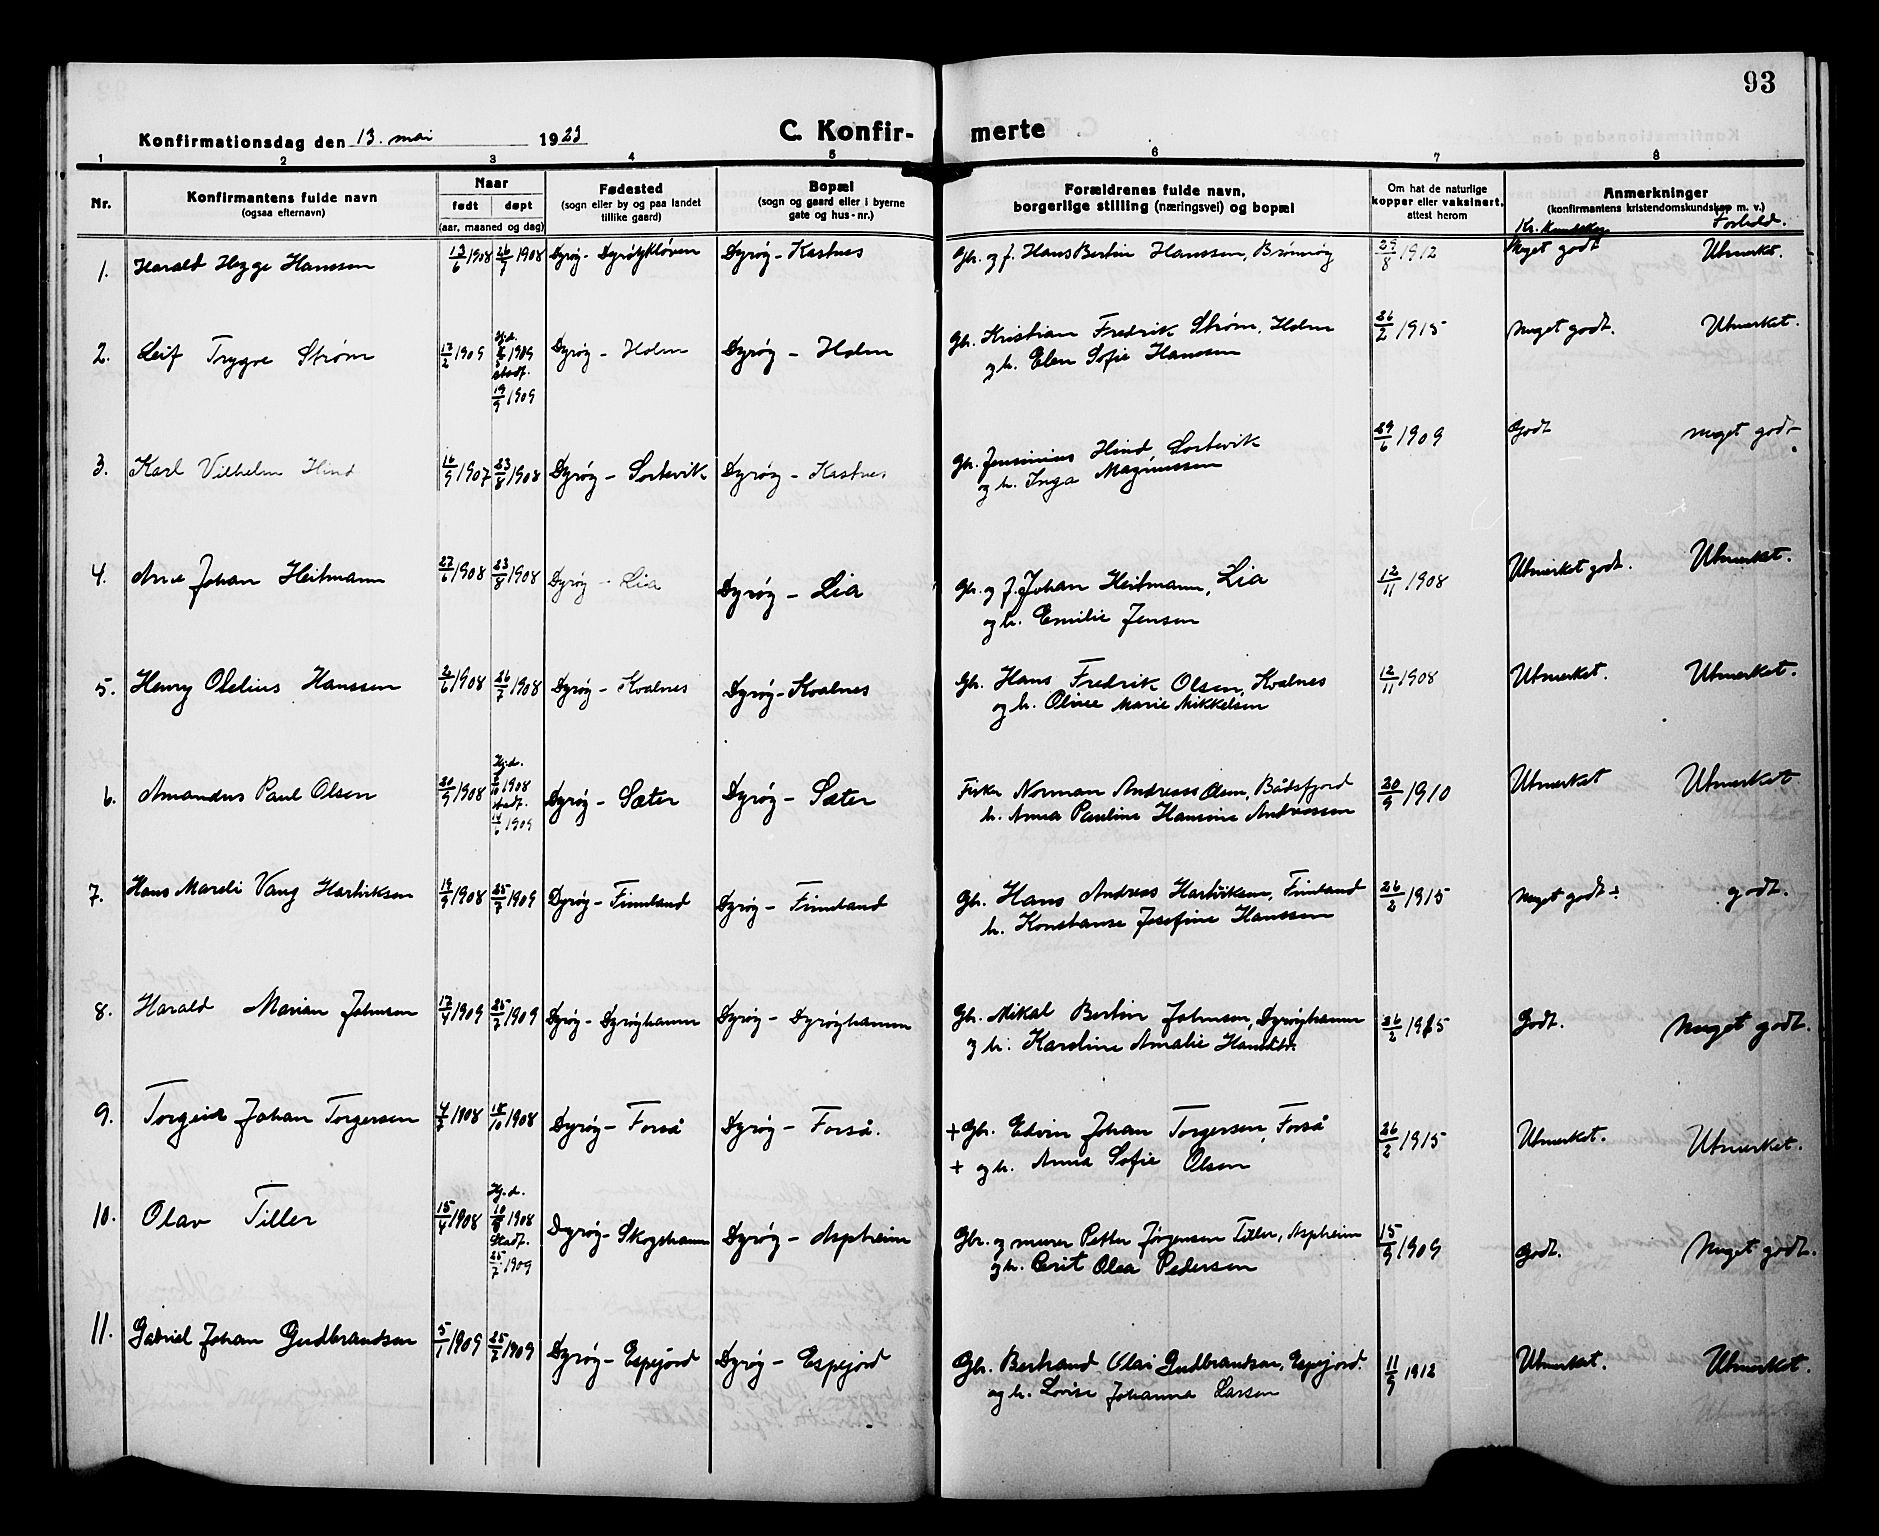 93
Konfirmationsdag den 13. mai 1923
C. Konfir-merte
1 2 3 4 5 6 7 8
Nr.
Konfirmantens fulde navn
(ogsaa efternavn)
Naar
født døpt
(aar, maaned og dag)
Fødested
(sogn eller by og paa landet
tillike gaard)
Bopæl
(sogn og gaard eller i byerne
gate og hus-nr.)
Forældrenes fulde navn,
borgerlige stilling (næringsvei) og bopæl
Om hat de naturlige
kopper eller vaksinert,
attest herom
Anmerkninger
(konfirmantens kristendomskundskap m. v.)
Kr. kundskap Forhold.
1. Harald Hegge Hanssen 13/6 1908 26/7 1908 Dyrøy - Dyrøykløven Dyrøy - Kastnes Gbr. og f. Hans Bertin Hanssen, Brønnøy 29/8 1912 Meget godt Utmerket.
2. Leif Trygve Strøm 17/2 1909 Hj.d. 1909 Dyrøy - Holm Dyrøy - Holm Gbr. Kristian Fredrik Strøm, Holm 26/2 1915 Meget godt. Utmerket.
stadf.
19/9 1909
og h. Elen Sofie Hanssen
3. Karl Vilhelm Hind 16/9 1907 23/8 1908 Dyrøy - Sortevik Dyrøy - Kastnes Gbr. Jensinius Hind, Sortevik 29/6 1909 Godt meget godt
og h. Inga Magnussen
4. Arne Johan Heitmann 27/6 1908 23/8 1908 Dyrøy - Lia Dyrøy - Lia Gbr. og f. Johan Heitmann, Lia 12/11 1908 Utmerket godt. Utmerket.
og h. Emilie Jensen
5. Henry Olelius Hanssen 2/6 1908 26/7 1908 Dyrøy - Kvalnes Dyrøy - Kvalnes Gbr. Hans Fredrik Olsen, Kvalnes 12/11 1908 Utmerket. Utmerket.
og h. Oline Marie Mikkelsen
6. Amandus Paul Olsen 20/9 1908 Hj.d. 1908 Dyrøy - Sæter Dyrøy - Sæter Fisker Norman Andreas Olsen, Båtsfjord 20/9 1910 Utmerket Utmerket
stadf.
14/6 1909
h. Anna Pauline Hansine Andreassen
7. Hans Mareli Vang Hartviksen 19/9 1908 25/7 1909 Dyrøy - Finnland Dyrøy - Finnland Gbr. Hans Andreas Hartviksen, Finnland 26/2 1915 Meget godt ÷ godt.
h. Konstanse Josefine Hanssen
8. Harald Marian Johnsen 17/4 1909 25/7 1909 Dyrøy - Dyrøyhamn Dyrøy - Dyrøyhamn Gbr. Mikal Bertin Johnsen, Dyrøyhamn 26/2 1915 Godt. Meget godt.
og h. Karoline Amalie
9. Torgeir Johan Torgersen 4/7 1908 18/10 1908 Dyrøy - Forså Dyrøy - Forså. + Gbr. Edvin Johan Torgersen, Forså 26/2 1915 Utmerket. Utmerket.
+ og h. Anna Sofie Olsen
10. Olav Tiller 15/4 1908 Hj.d. 1908 Dyrøy - Skogshamn Dyrøy - Aspheim Gbr. og murer Petter Jørgensen Tiller, Aspheim 15/9 1909 Godt. Meget godt.
Stadf.
25/7 1909
og h. Berit Olea Pedersen
11. Gabriel Johan Gudbrandsen 5/1 1909 25/7 1909 Dyrøy - Espejord Dyrøy - Espejord Gbr. Bertrand Olai Gudbrandsen, Espejord. 11/9 1912 Utmerket. Utmerket.
og h. Lovise Johanna Larsen